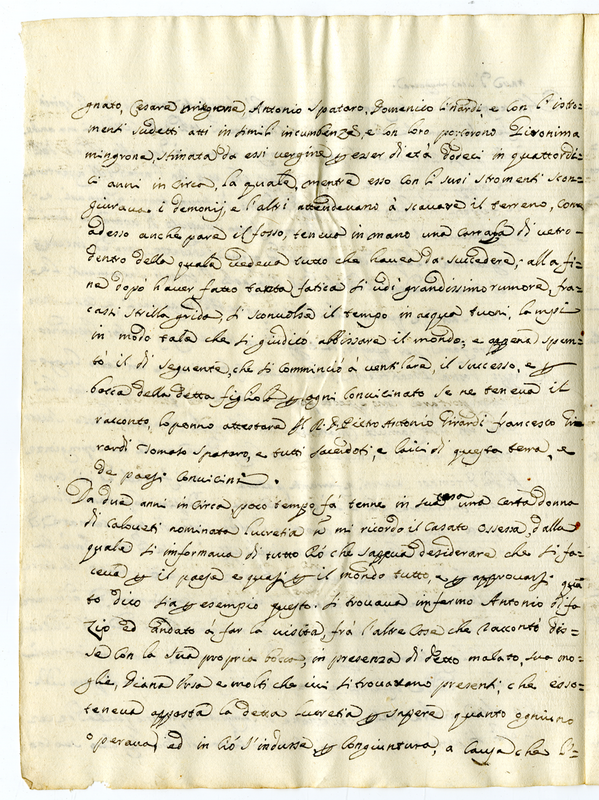 gnato, Cesare mingrone, Antonio Spataro, Domenico Linardi, e con l'isto=
menti sudetti atti in simili incumbenze, e con loro portorono Gieronima
mingrone, stimata da essi vergine p esser di età dodeci in quattordi=
ci anni in circa, la quale, mentre esso con li suoi stromenti scon=
giurava i demonij, e l'altri attendevano à scavare il terreno, come
adesso anche pare il fosso, teneva in mano una carrafa di vetro
dentro della quale vedeva tutto che havea da succedere, alla fi=
ne dopò haver fatto tanta fatica si udì grandissimo rumore, fra=
cassi strilla grida, si sconvolse il tempo in acqua tuoni, lampi
in modo tale che si giudicò abbissare il mondo, e appena spun=
tò il dì seguente, che si comminciò a ventilare il successo, e p
bocca della detta figliola p ogni convicinato se ne teneva il
racconto, lo ponno attestare il R. D. Pietro Antonio Girardi francesco Gi=
rardi Tomaso Spataro, e tutti sacerdoti, e laici di questa terra, e
de paesi convicini.
Da due anni in circa poco tempo fà tenne in sua casa una certa donna
di Caloveti nominata Lucretia nò mi ricordo il Casato, ossessa, dalla
quale si informava di tutto ciò che sapeva desiderare che si fa=
ceva p il paese e quasi p il mondo tutto, e p approvarsi quā
to dico sia p esempio questo. Si trovava infermo Antonio di fa
zio ed andato à far la visita, frà l'altre cose che raccontò dis=
se con la sua propria bocca, in presenza di detto malato, sua mo=
glie, Diana Ursa e molti che ivi si trovavano presenti, che esso
teneva apposta la detta Lucretia p sapere quanto ogniuno
operava, ed in ciò s'indusse p congiuntura, a causa che l'=